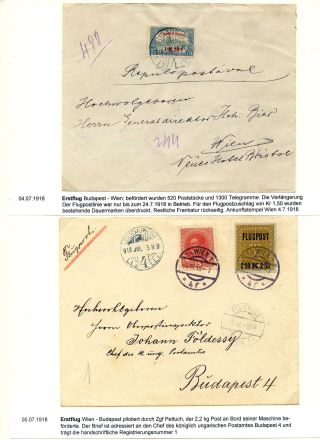 Repülőpostával
Hochwolgeboren
Herrn Generaldirektor
Wien
Neues Hotel Bristol
04.07.1918 Erstflug Budapest - Wien; befördert wurden 520 Poststücke und 1300 Telegramme. Die Verlängerung
Der Flugpostlinie war nur bis zum 24.7.1918 in Betrieb. Für den Flugpostzuschlag von Kr 1,50 wurden
bestehende Dauermarken überdruckt. Restliche Frankatur rückseitig. Ankunftstempel Wien 4.7.1918
Flugpost
BUDAPEST
918 JUL
FLUGPOST
2·50 K 2·50
Herrn
Johann Földessy
Chef des k. ung. Postamtes
Budapest 4
1
05.07.1918 Erstflug Wien - Budapest pilotiert durch Zgf Pettuch, der 2,2 kg Post an Bord seiner Maschine be-
förderte. Der Brief ist adressiert an den Chef des königlich ungarischen Postamtes Budapest 4 und
trägt die handschriftliche Registrierungsnummer 1